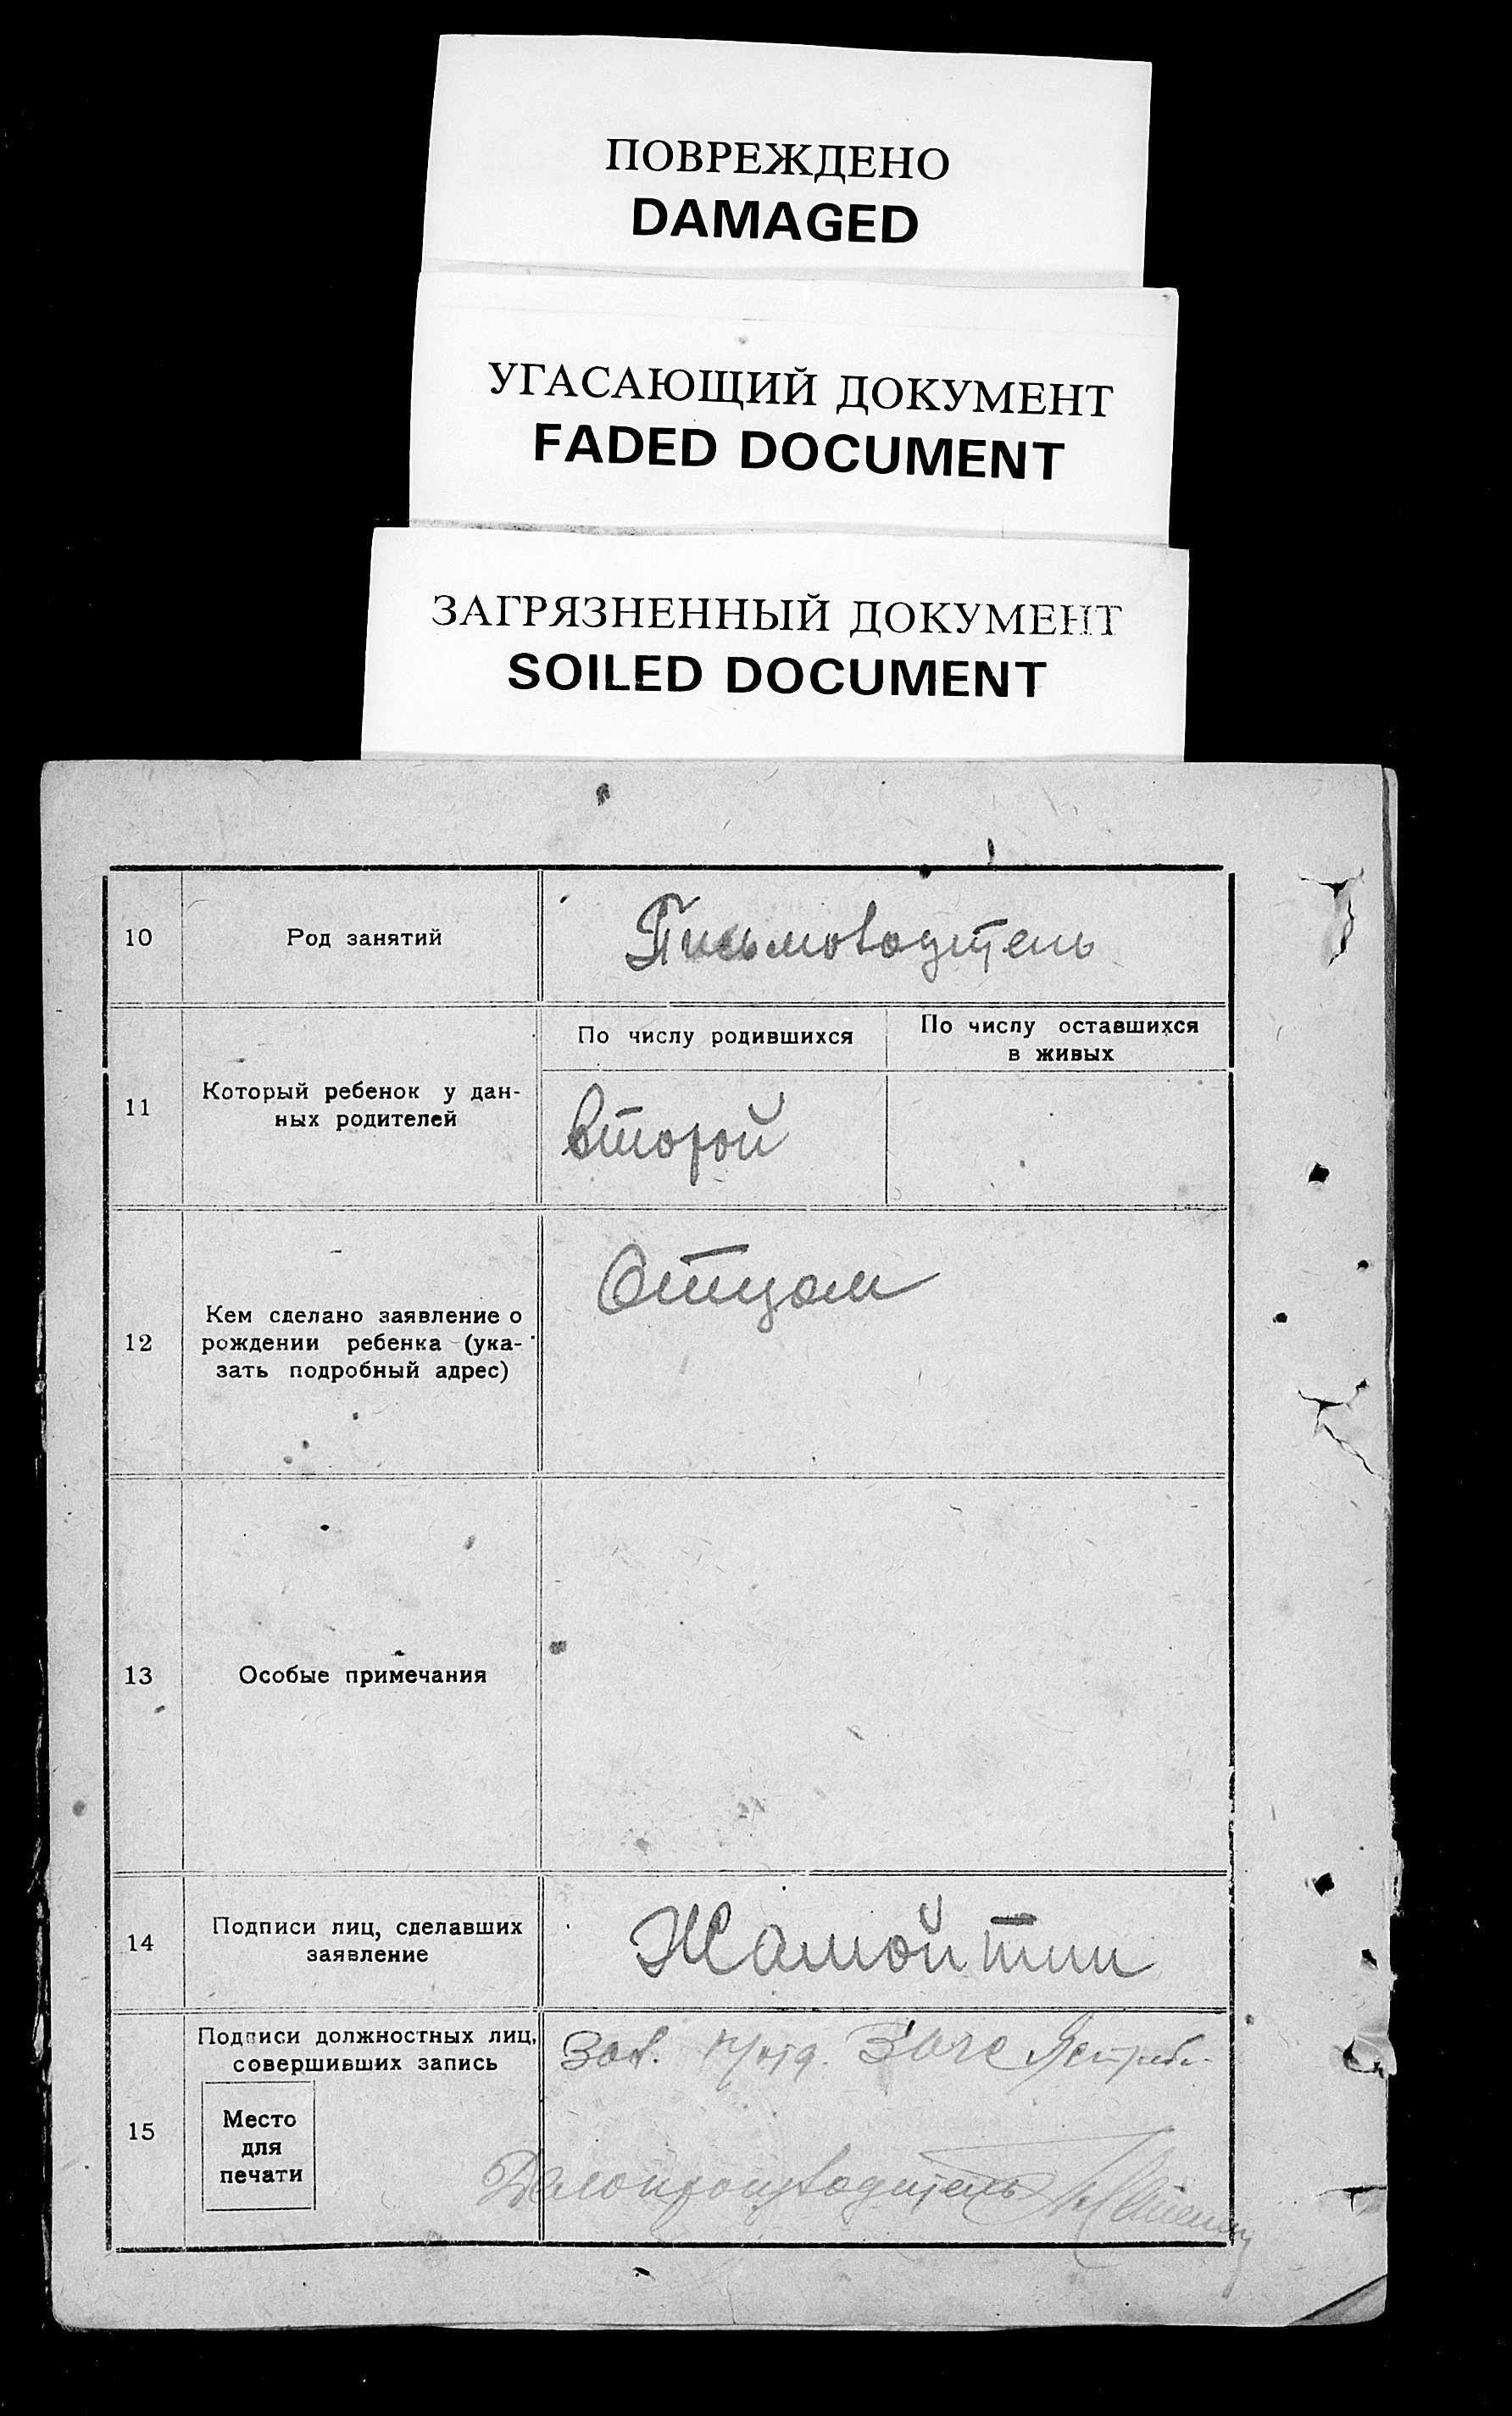 ПОВРЕЖДЕНО
DAMAGED
УГАСАЮЩИЙ ДОКУМЕНТ
FADED DOCUMENT
ЗАГРЯЗНЕННЫЙ ДОКУМЕНТ
SOILED DOCUMENT
10
Род занятий
Письмоводитель
11
Который ребенок у дан-
ных родителей
По числу родившихся
По числу оставшихся
в живых
Второй
12
Кем сделано заявление о
рождении ребенка (ука-
зать подробный адрес)
Отцом
13
Особые примечания
14
Подписи лиц, сделавших
заявление
Жамойтин
15
Подписи должностных лиц,
совершивших запись
Место
для
печати
Зав. п/отд. Загс
Делопроизводитель